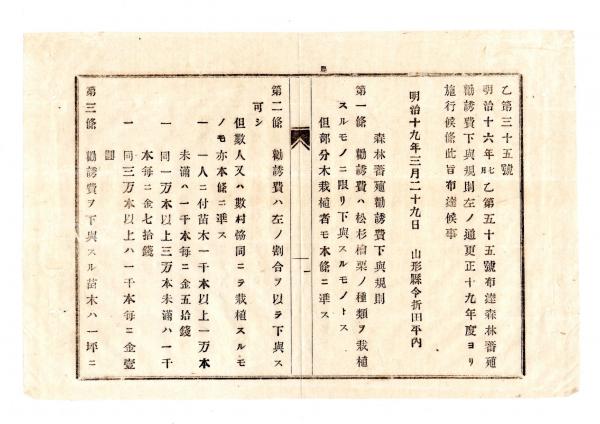 乙第三十五號
明治十六年七月乙第五十五號布達森林蕃殖
勸誘費下與規則左ノ通更正十九年度ヨリ
施行候條此旨布達候事
明治十九年三月二十九日 山形縣令折田平內
森林蕃殖勸誘費下與規則
第一條 勸誘費ハ松杉檜栗ノ種類ヲ栽植
スルモノニ限リ下與スルモノトス
但部分木栽植者モ本條ニ準ス
一
第二條 勸誘費ハ左ノ割合ヲ以テ下與ス
可シ
但數人又ハ數村恊同ニテ栽植スルモ
ノモ亦本條ニ準ス
一 一人ニ付苗木一千本以上一万本
未滿ハ一千本每ニ金五拾錢
一 同一万本以上三万本未滿ハ一千
本每ニ金七拾錢
一 同三万本以上ハ一千本每ニ金壹
圓
第三條 勸誘費ヲ下與スル苗木ハ一坪ニ